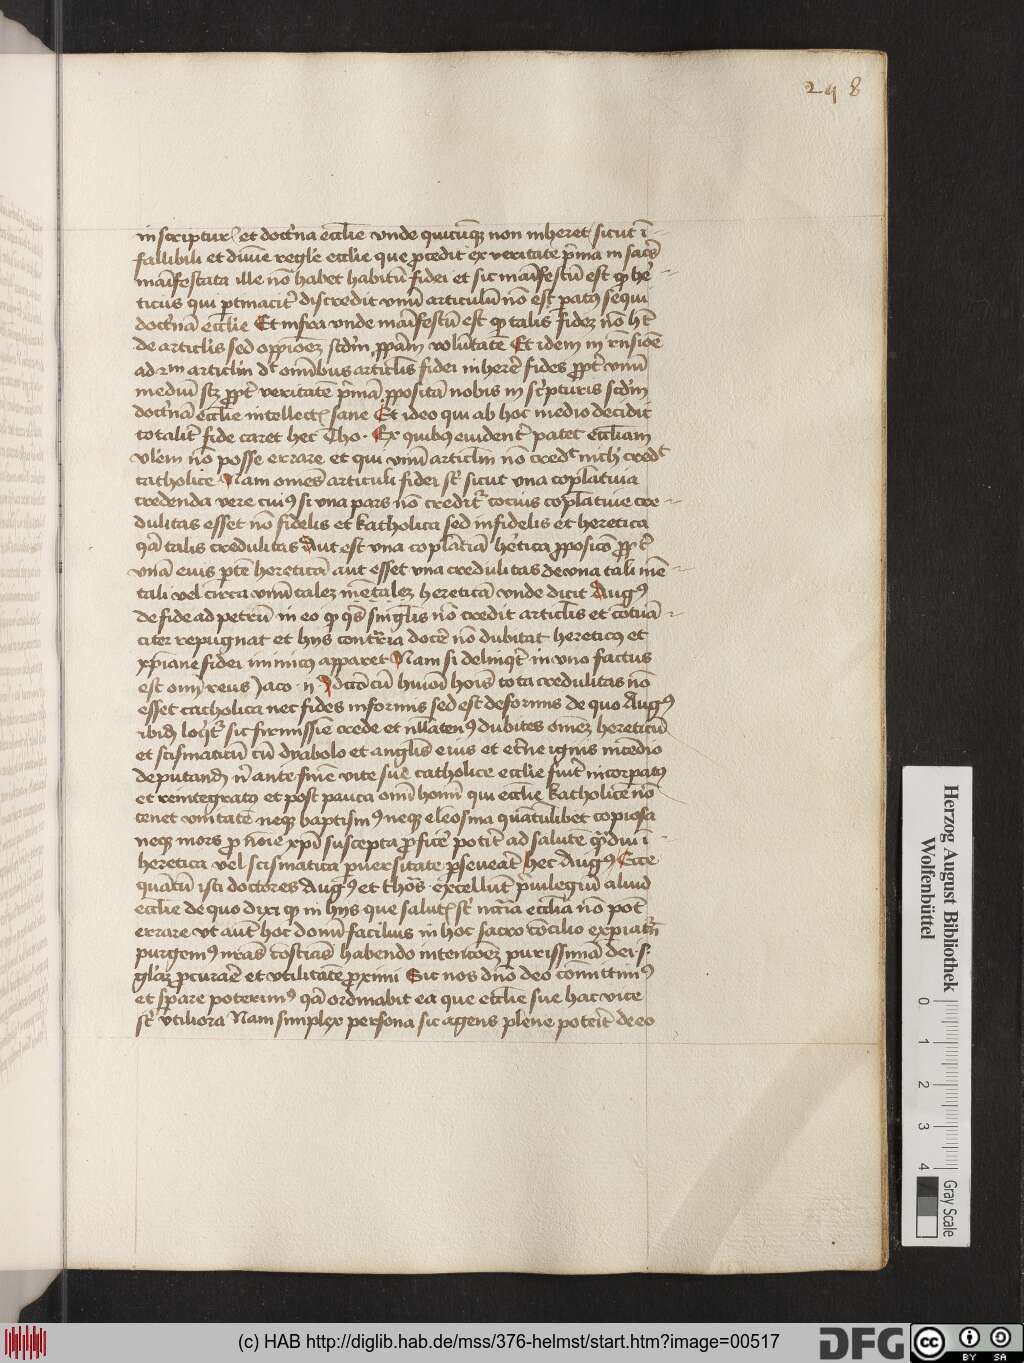 248
in scriptur et doctna ecclie vnde quicuq non inheret sicut i
fallibili et diuie regle ecclie que pcedit ex veritate pma in sacs
maifestata ille no habet habitu fidei et sic maifestu est qp he
ticus qui ptinacit discredit vnu articulu no est patus sequi
doctna ecclie Et infra vnde maifestu est qp talis fidez no ht
de articlis sed oppioez scdm ppam volutate Et idem in rnsioe
ad 2m articlm dt omibus articlis fidei inhere fides ppt vnu
mediu scz ppt veritate pma pposita nobis in scpturis scdm
doctna ecclie intellect sane Et ideo qui ab hoc medio decidit
totalit fide caret hec Tho. Ex quibus euident patet eccliam
vlem no posse errare et qui vnu articlm no credt nich credt
catholice Nam omes articuli fidei st sicut una coplatiua
credenda vere cui9 si una pars no credit tocius coplatiue cre
dulitas esset no fidelis et katholica sed infidelis et heretica
qa talis credulitas Aut est una coplatia hetica pposico ppt
vna eius pte heretica aut esset una credulitas de una tali me
tali vel circa vnu talez metalez heretica vnde dicit Aug9
de fide ad petru in eo qp qs singlis no credit articlis et cotua
citer repugnat et hijs contria doce no dubitat hereticus et
xpiane fidei inimicus apparet Nam si delinqt in vno factus
est oim reus Jaco. 2
esset catholica nec fides informis sed est deformis de quo Aug9
ibid loqt sic firmissie crede et nllaten9 dubites omez hereticu
et scismaticu cu dyabolo et anglis eius et etne ignis incedio
deputand n ante fine vite sue catholice ecclie fuit incorpatus
et reintegratus et post pauca omi homi qui ecclie katholice no
tenet vnitate neq baptism9 neq eleosina quatulibet copiosa
neq mors p noie xpi suscepta pfice potit ad salute qdiu i
heretica vel scismatica puersitate pseueat hec Aug9 Ecce
quatu isti doctores Aug9 et thos excellut priuilegiu aliud
ecclie de quo dixi qp in hijs que salut st nccia ecclia no pot
errare vt aut hoc donu facilius in hoc sacro cocilio expiat
purgem9 nras costias habendo intencoez purissima dei s.
glaz pcurae et vtilitate pximi Sic nos dno deo comittim9
et spare poterim9 qa ordinabit ea que ecclie sue hac vice
st vtiliora Nam simplex persona sic agens plene poteit de eo
Herzog August Bibliothek
Wolfenbüttel
0 1 2 3 4
Gray Scale
(c) HAB http://diglib.hab.de/mss/376-helmst/start.htm?image=00517
DFG
cc BY SA